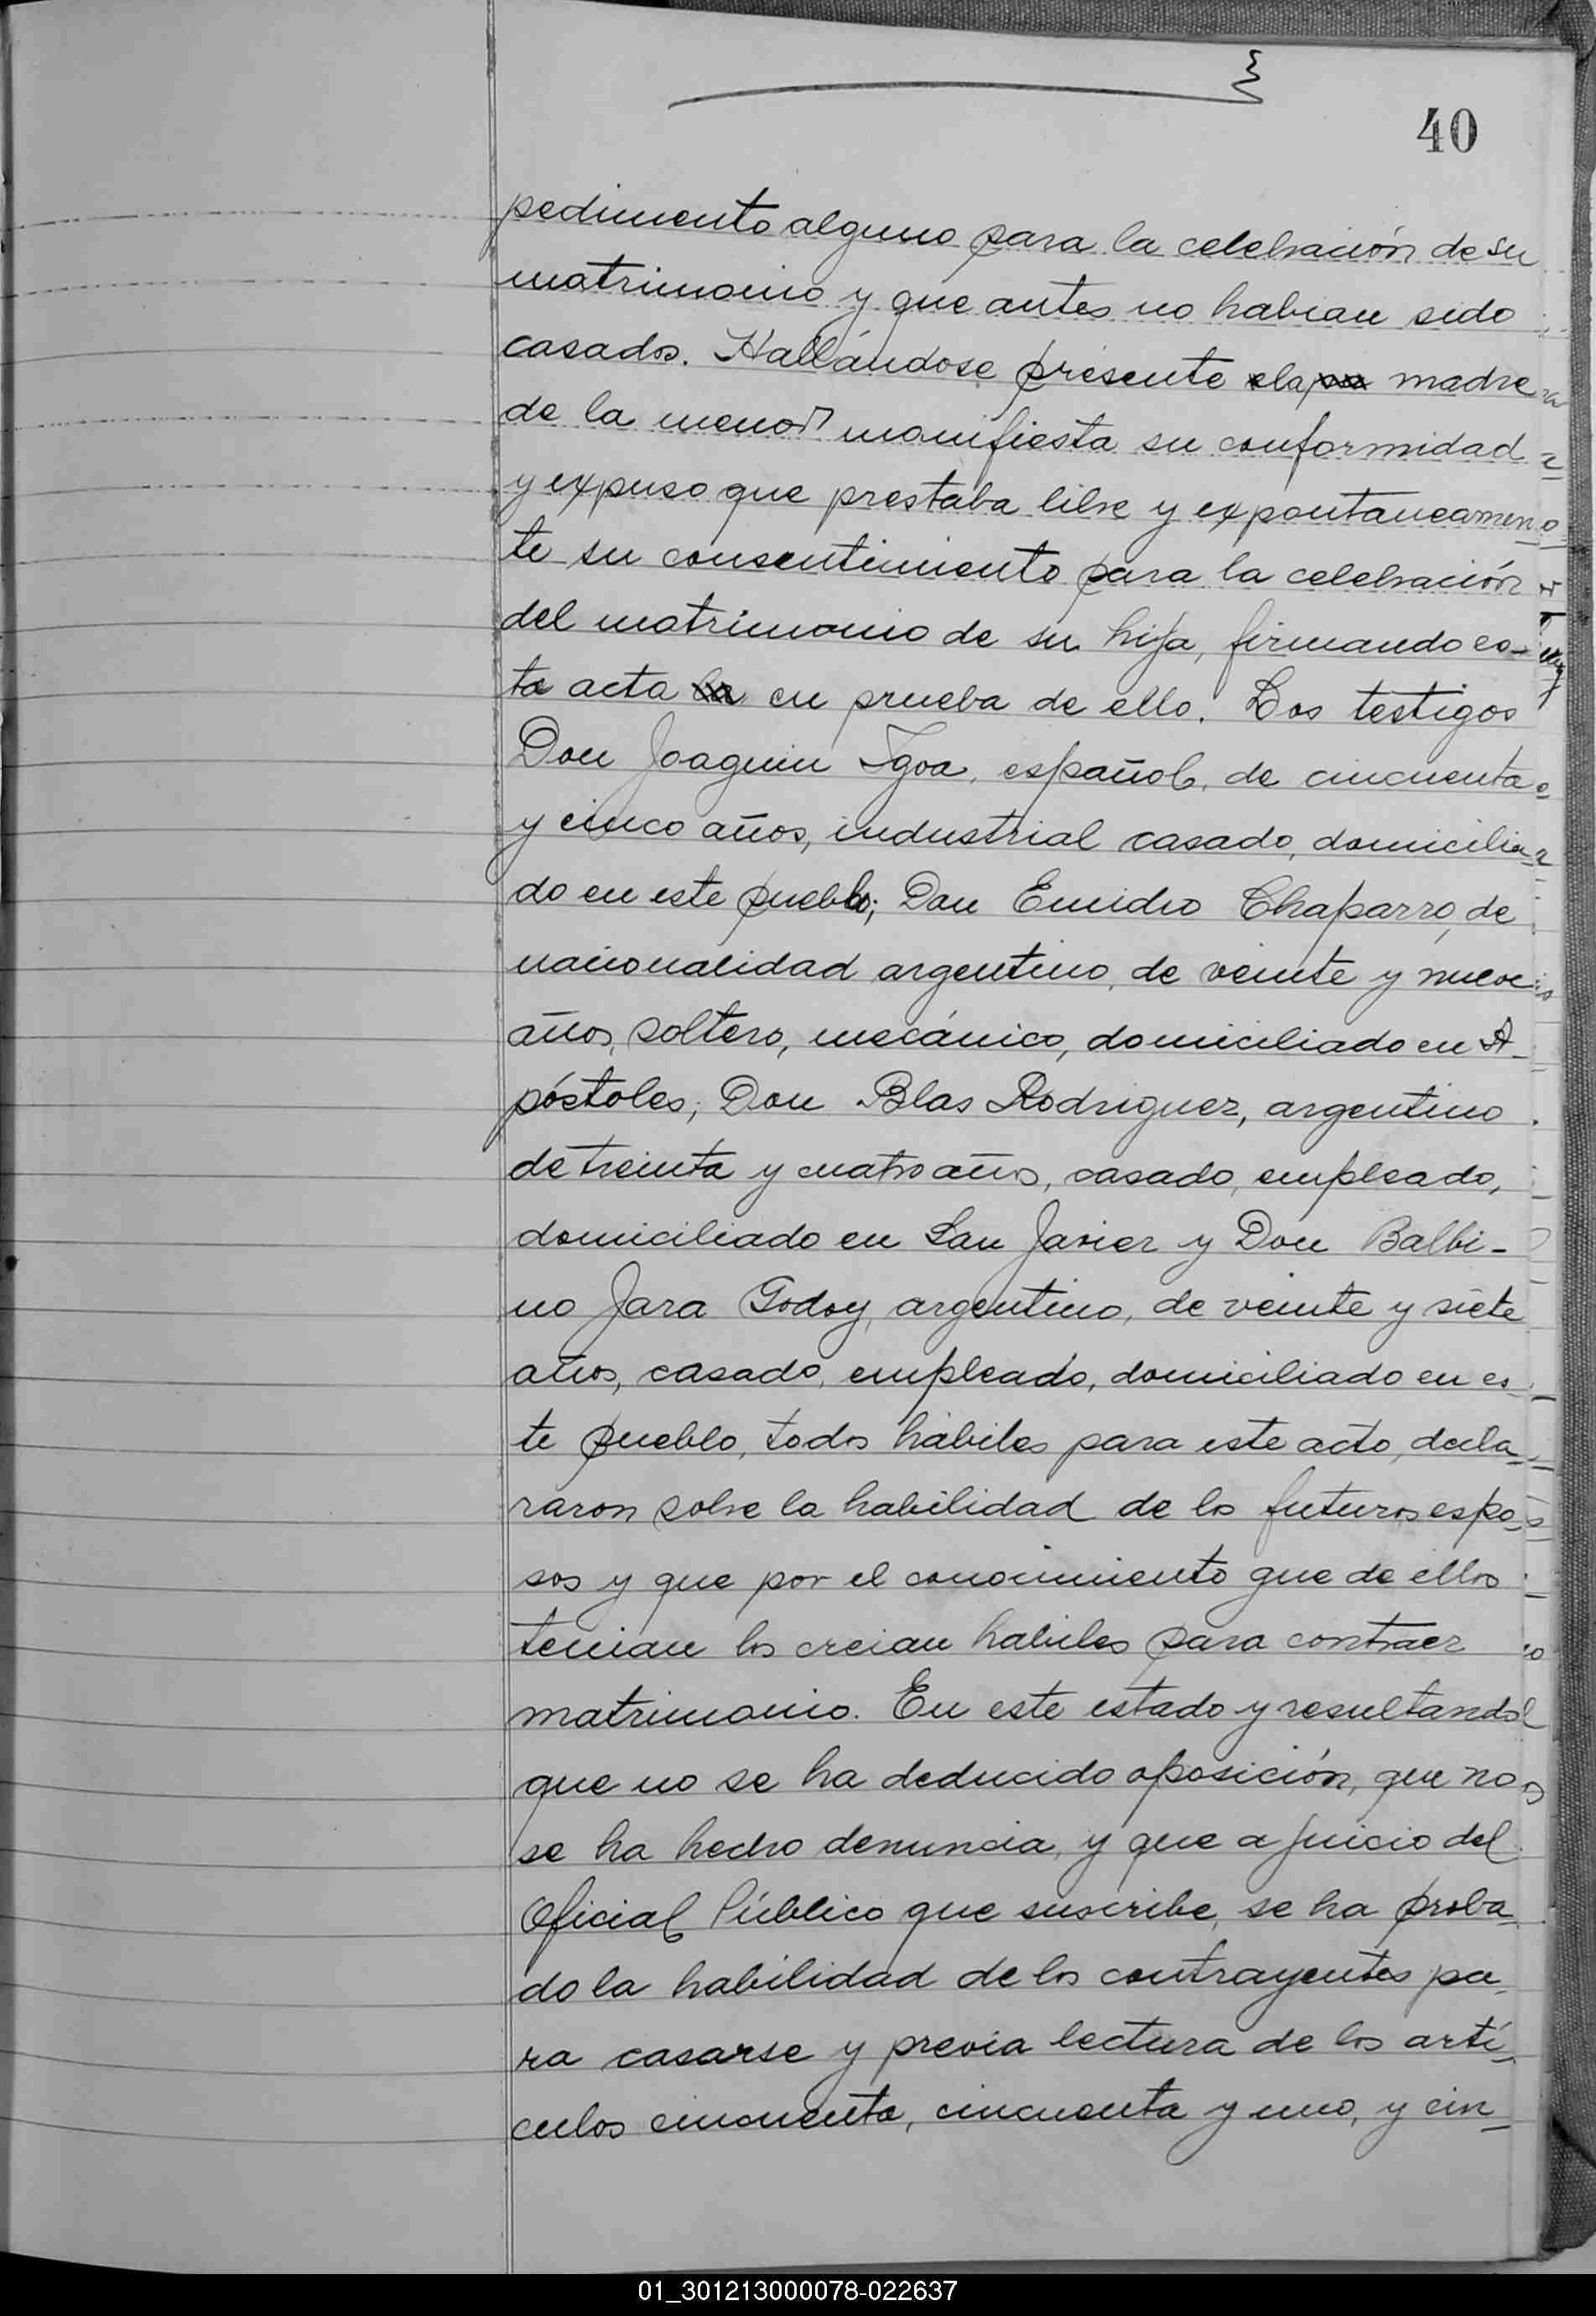 40
pedimento alguno para la celebración de su
matrimonio y que antes no habian sido
casados. Hallándose presente la madre
de la menor manifiesta su conformidad
y expuso que prestaba libre y expontaneamen
te su consentimiento para la celebración
del matrimonio de su hija, firmando es-
ta acta en prueba de ello. Los testigos
Don Joaquin Igoa, español, de cincuenta
y cinco años, industrial casado, domicilia
do en este pueblo; Don Emidio Chaparro, de
nacionalidad argentino, de veinte y nueve
años, soltero, mecánico, domiciliado en A-
póstoles; Don Blas Rodriguez, argentino
de treinta y cuatro años, casado, empleado,
domiciliado en San Javier y Don Balbi-
no Jara Godoy, argentino, de veinte y siete
años, casado, empleado, domiciliado en es-
te pueblo, todos hábiles para este acto, decla-
raron sobre la habilidad de los futuros espo-
sos y que por el conocimiento que de ellos
tenian los creian habiles para contraer
matrimonio. En este estado y resultando
que no se ha deducido oposición, que no
se ha hecho denuncia, y que a juicio del
Oficial Público que suscribe, se ha proba-
do la habilidad de los contrayentes pa-
ra casarse y previa lectura de los artí-
culos cincuenta, cincuenta y uno, y cin-
01_301213000078-022637